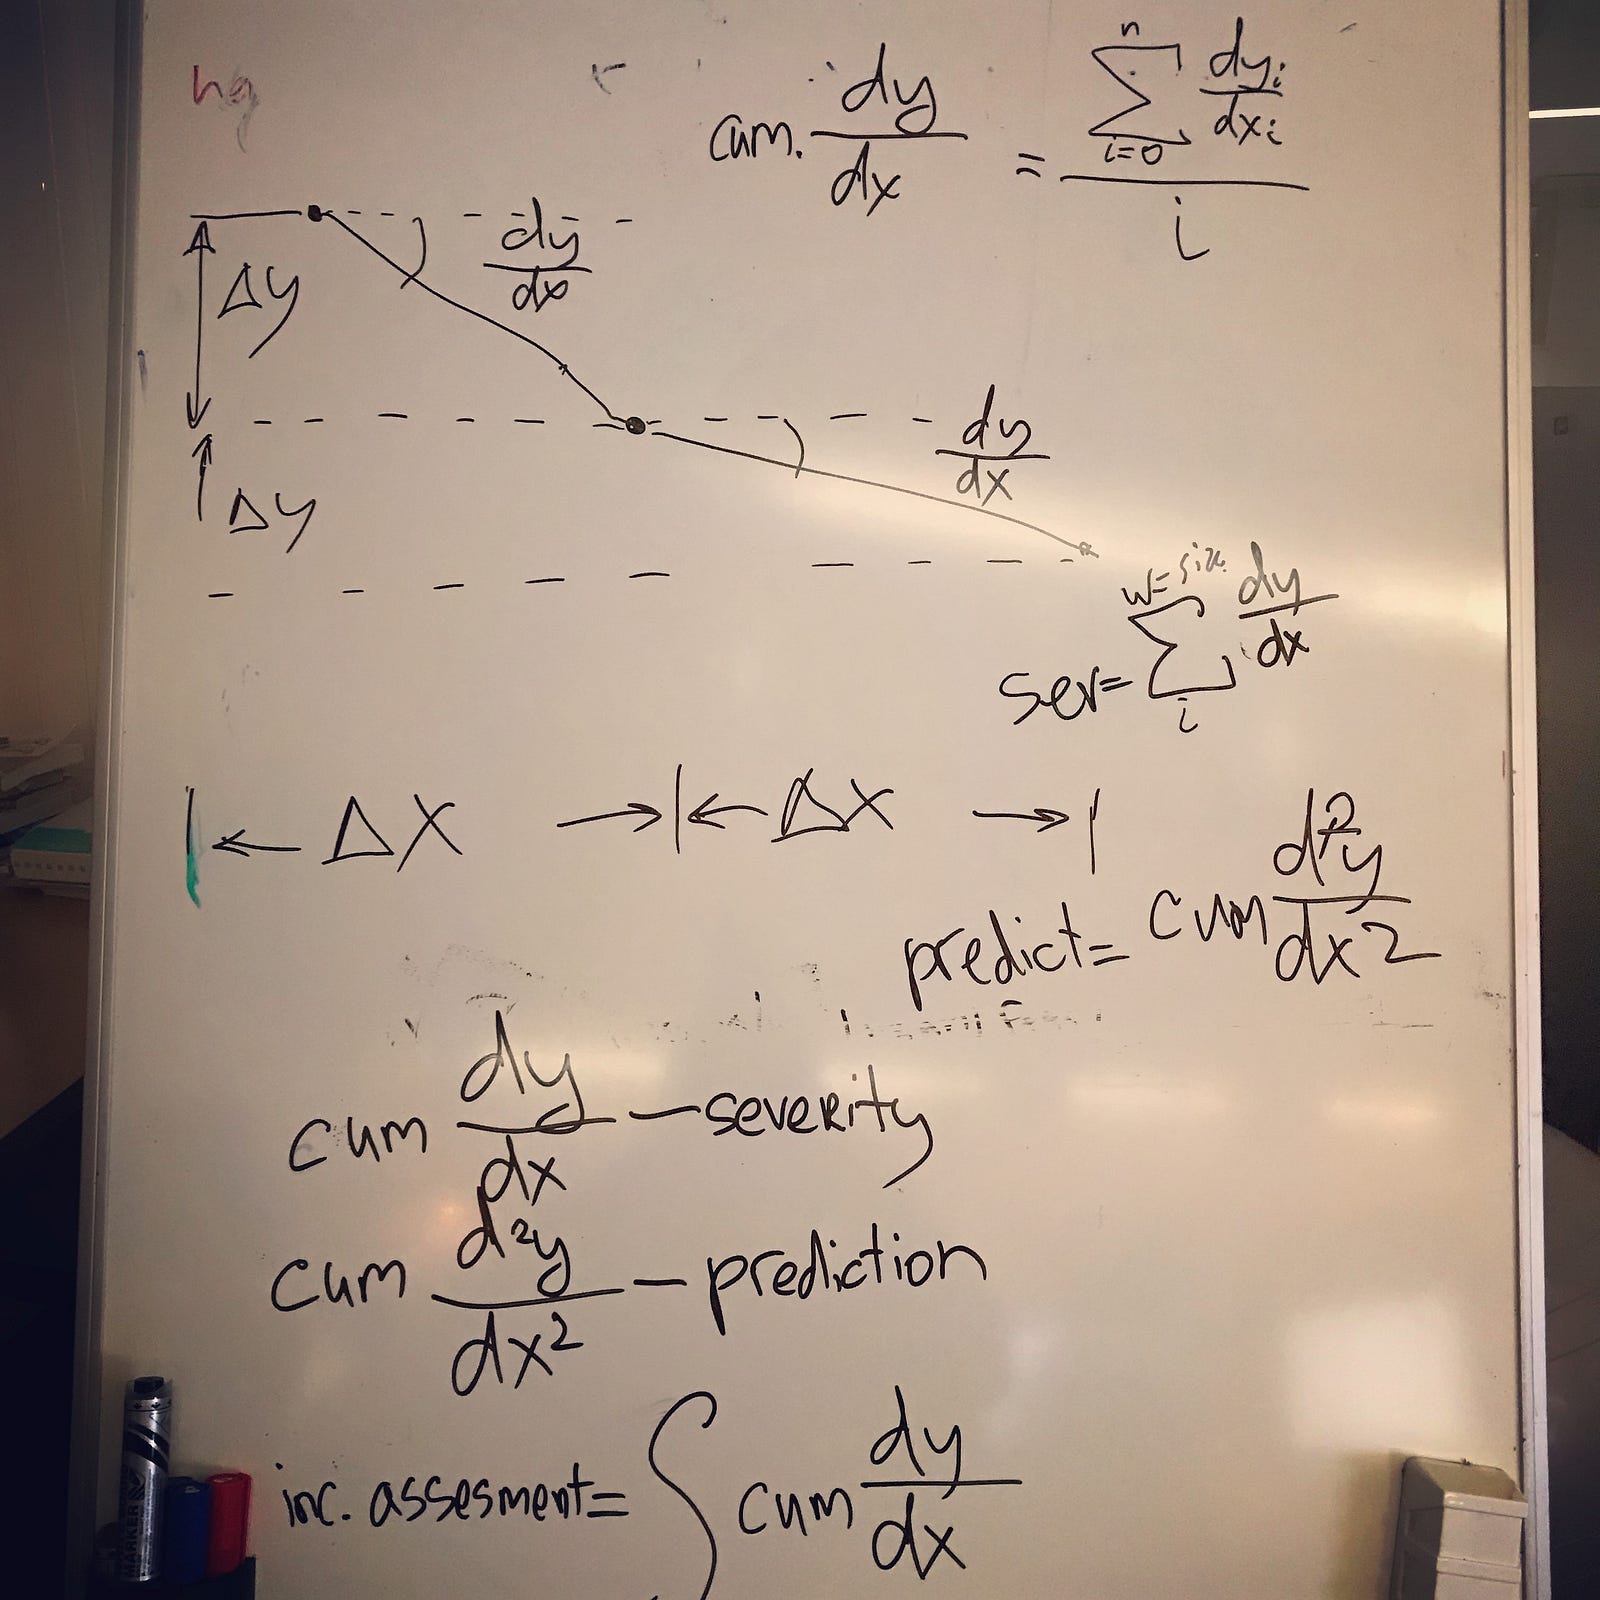 cum. dy/dx = ∑ i=0 n dyi/dxi / i
Δy
dy/dx
dy/dx
Δy
sev= ∑ i dy/dx
|← ΔX →|← ΔX →|
predict= cum d²y/dx2
cum dy/dx — severity
cum d²y/dx² — prediction
inc. assesment= ∫ cum dy/dx
MARKER